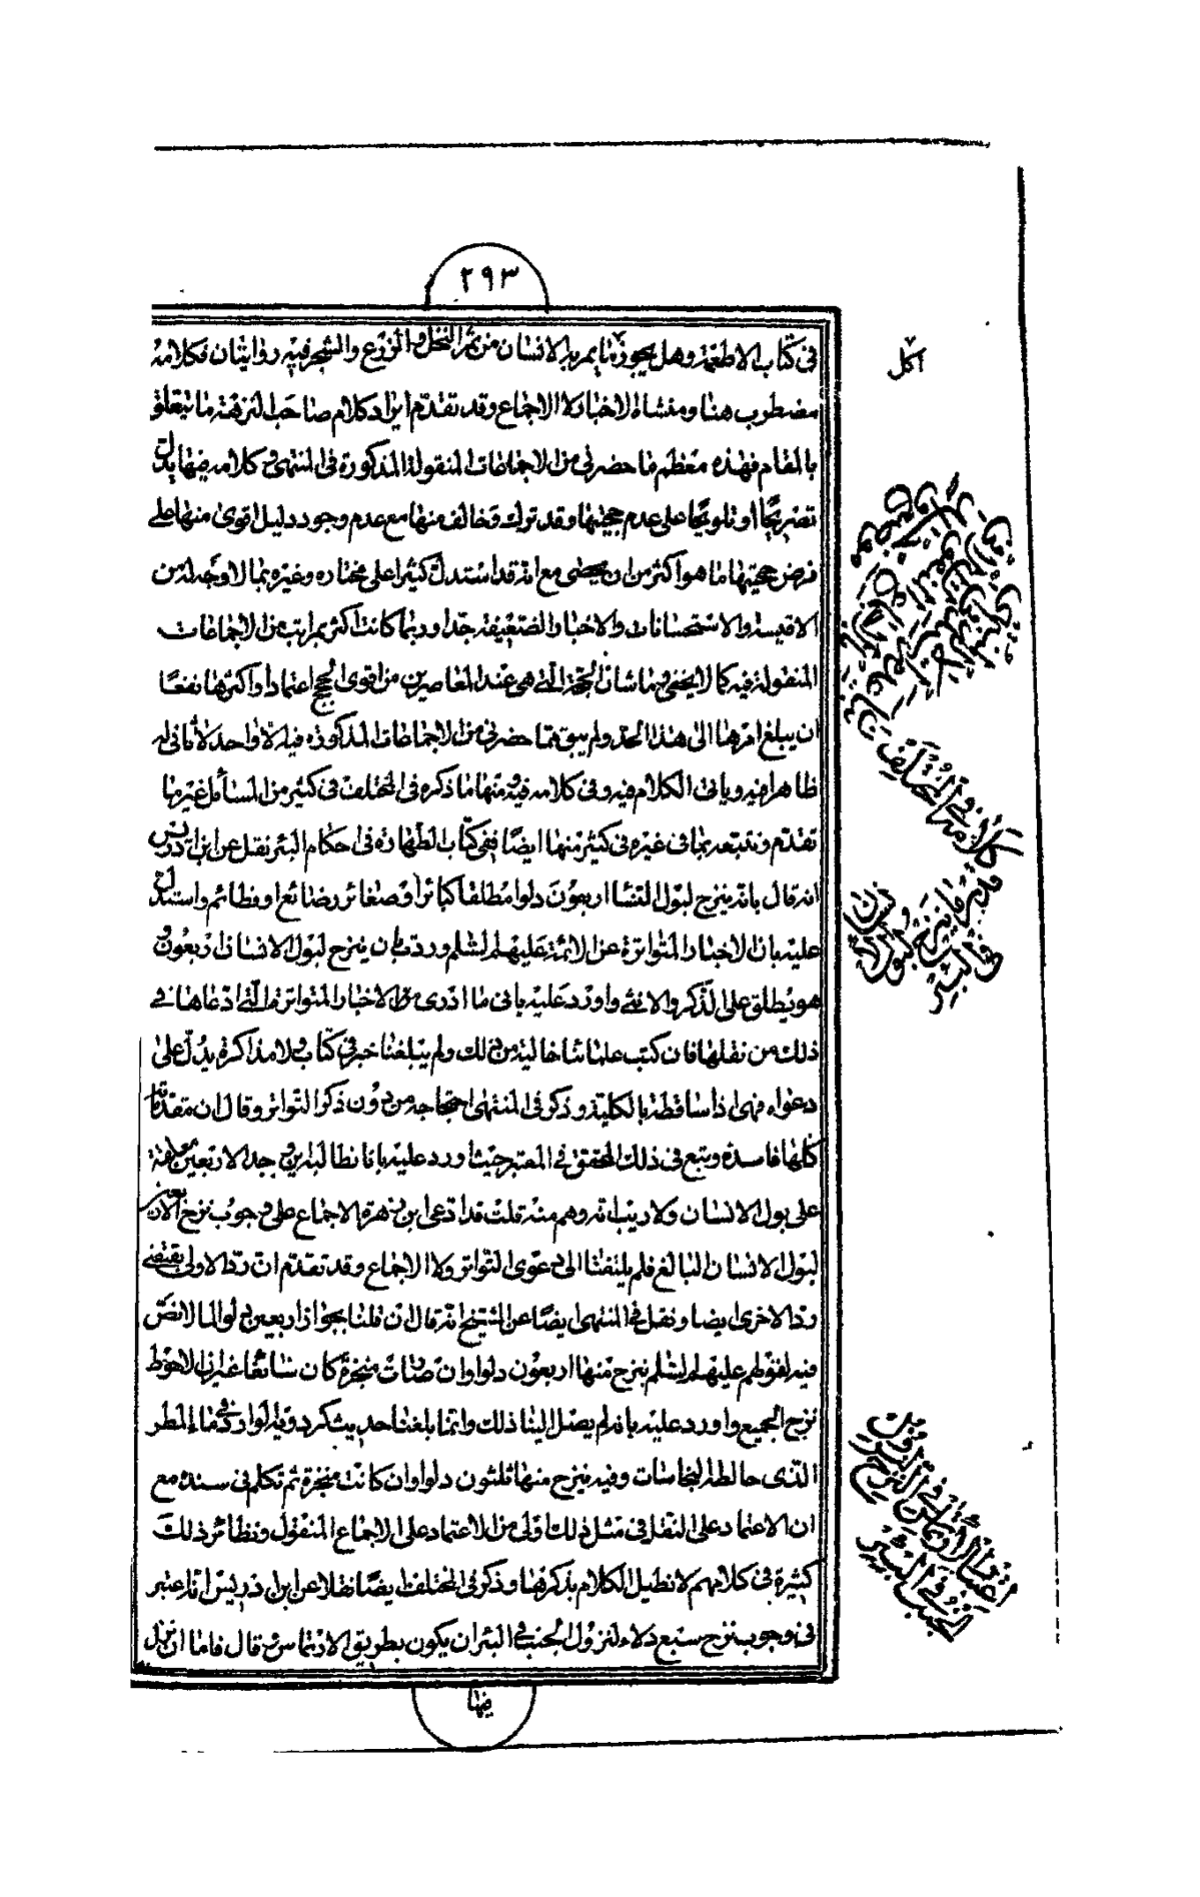 ٢٩٣
في كتاب الاطعمة وهل يجوز ما يمر به الانسان من ثمر النخل والزرع والشجر فيه روايتان فكلامه
اكل
مضطرب هنا ومنشاه الاخبار لا الاجماع وقد تقدم ايراد كلام صاحب النزهة ما يتعلق
بالمقام فهذه معظم ما حضرني من الاجماعات المنقولة المذكورة في المنتهى وكلامه فيها يدل
تصريحا او تلويحا على عدم حجيتها وقد ترك وخالف منها مع عدم وجود دليل اقوى منها على
فرض حجيتها ما هو اكثر من ان يحصى مع انه قد استدل كثيرا على مختاره وغيره بما لا وجه له من
الاقيسة والاستحسانات والاخبار الضعيفة جدا وربما كانت اكثر بمراتب من الاجماعات
المنقولة فيه كما لا يخفى وما شان الحجة التي هي عند المعاصرين من اقوى الحجج اعتمادا واكثرها نفعا
ان يبلغ امرها الى هذا الحد ولم يبق مما حضرني من الاجماعات المذكورة فيه الا واحد لا ثاني له
ظاهرا فيه وياتي الكلام فيه وفي كلامه فيه ومنها ما ذكره في المختلف في كثير من المسائل غير ما
تقدم ونتبعه بما في غيره في كثير منها ايضا ففي كتاب الطهارة في احكام البئر نقل عن ابن ادريس
انه قال بانه ينزح لبول النساء اربعون دلوا مطلقا كبائرا وصغائر رضائع او فطائم واستدل
عليه بان الاخبار المتواترة عن الائمة عليهم السلم وردت بان ينزح لبول الانسان اربعون و
هو يطلق على الذكر والانثى واورد عليه باني ما ادري من الاخبار المتواترة التي ادعاها في
ذلك من نقلها فان كتب علمائنا خالية من ذلك ولم يبلغنا خبر في كتاب ولا مذاكرة يدل على
دعواه فهي اذا ساقطة بالكلية وذكر في المنتهى احتجاجه من دون ذكر التواتر وقال ان مقدماته
كلها فاسدة وتبع في ذلك المحقق في المعتبر حيث اورد عليه بانا نطالبه اين وجد الاربعين معلقة
على بول الانسان ولا ريب انه وهم منه قلت قد ادعى ابن زهرة الاجماع على وجوب نزح الاربعين
لبول الانسان البالغ فلم يلتفتا الى دعوى التواتر ولا الاجماع وقد تقدم ان رد الاولى يقتضي
رد الاخرى ايضا ونقل في المنتهى ايضا عن الشيخ انه قال ان قلنا بجواز اربعين دلوا لما لا نص
فيه لقولهم عليهم السلم ينزح منها اربعون دلوا وان صارت مبخرة كان سائغا غير ان الاحوط
نزح الجميع واورد عليه بانه لم يصل الينا ذلك وانما بلغنا حديث كردويه الوارد في ماء المطر
الذي خالطه النجاسات وفيه ينزح منها ثلثون دلوا وان كانت مبخرة ثم تكلم في سنده مع
ان الاعتماد على النقل في مثل ذلك اولى من الاعتماد على الاجماع المنقول ونظائر ذلك
كثيرة في كلامهم لا نطيل الكلام بذكرها وذكر في المختلف ايضا نقلا عن ابن ادريس انه اعتبر
في وجوب نزح سبع دلاء لنزول الجنب في البئر ان يكون بطريق الارتماس ثم قال فاما ان نزل
فيها
كلامه في المختلف